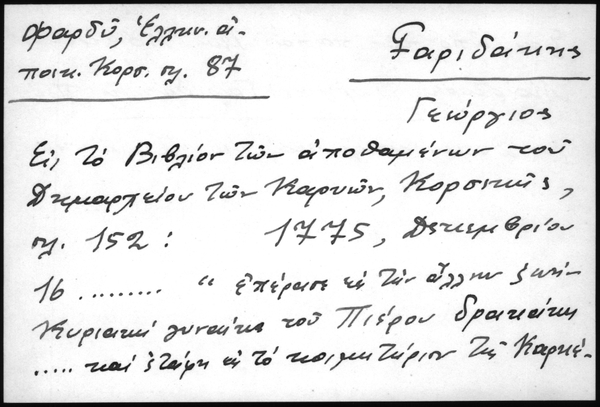 Φαρδῦ, Ἑλλην. ἀ-
ποικ. Κορσ. σλ. 87
Γαριδάκης
Γεώργιος
Εἰς τό Βιβλίον τῶν ἀποθαμένων τοῦ
Δημαρχείου τῶν Καρυῶν, Κορσικῆς,
σλ. 152 : 1775, Δεκεμβρίου
16 ......... “ ἐπέρασε εἰς τήν ἄλλην ζωήν
Κυριακή γυναίκα τοῦ Πιέρου Δρακάκη
..... καί ἐτάφη εἰς τό κοιμητήριον τῆς Καργέ-